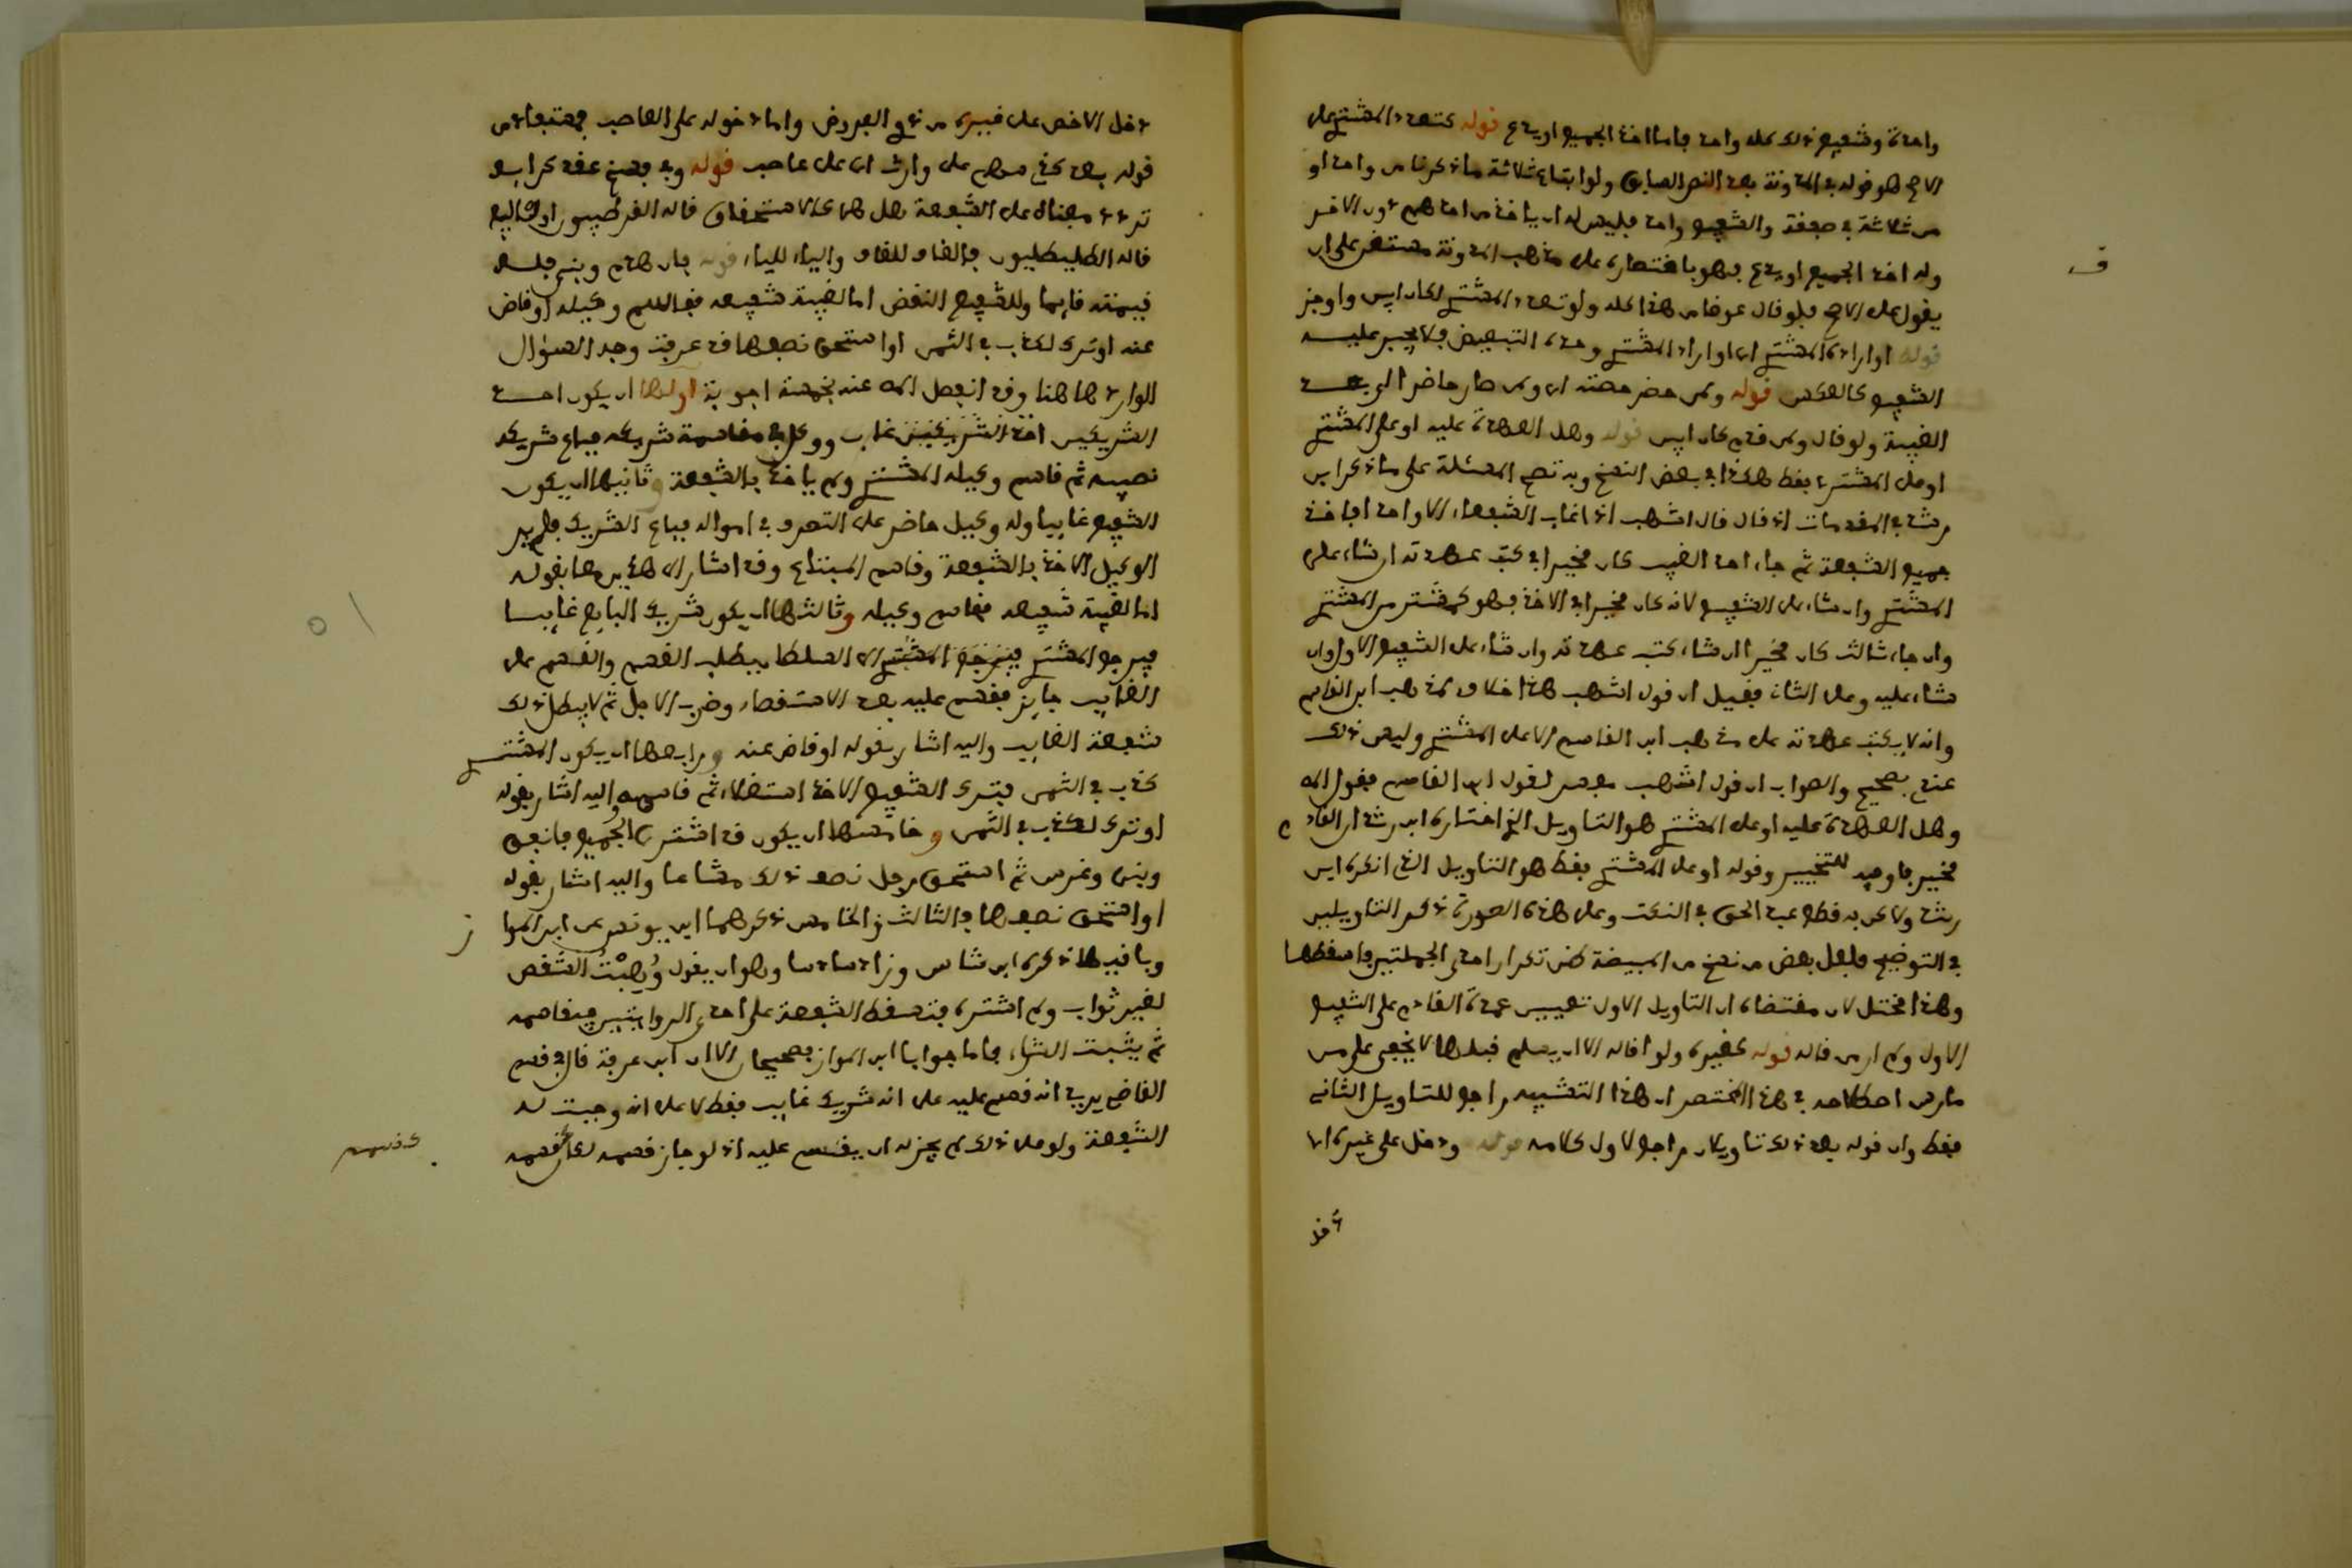 واحدة وشفيع ذلك كله واحد فاما اخذ الجميع او يدع قوله كتعدد المشتري على
الاصح هو قوله في المدونة بعد النص السابق ولو ابتاع ثلاثة ما ذكرنا من واحد او
من ثلاثة في صفقة والشفيع واحد فليس له ان ياخذ من احدهم دون الاخر
وله اخذ الجميع او يدع فهو باختصاره على مذهب المدونة مستغن على ان
يقول على الاصح فلو قال عوضا من هذا كله ولو تعدد المشتري لكان ابين واوجز
قوله او اراده المشتري اي او اراد المشتري وحده التبعيض فلا يجبر عليه
الشفيع كالعكس قوله ولمن حضر حصته اي ولمن صار حاضرا الى بعد
الغيبة ولو قال ولمن قدم كان ابين قوله وهل العهدة عليه او على المشتري
او على المشتري فقط هكذا في بعض النسخ وبه تصح المسئلة على ما ذكر ابن
رشد في المقدمات اذ قال قال اشهب اذا غاب الشفعاء الا واحدا فاخذ
جميع الشفعة ثم جاء احد الغيب كان مخيرا في كتب عهدته ان شاء على
المشتري وان شاء على الشفيع لانه كان مخيرا في الاخذ فهو كمشتر من المشتري
وان جاء ثالث كان مخيرا ان شاء كتب عهدته وان شاء على الشفيع الاول وان
شاء عليه وعلى الثاني فقيل ان قول اشهب هذا خلاف لمذهب ابن القاسم
وانه لا يكتب عهدته على مذهب ابن القاسم الا على المشتري وليس ذلك
عندي بصحيح والصواب ان قول اشهب مفسر لقول ابن القاسم فقول المص
وهل العهدة عليه او على المشتري هو التاويل الذي اختاره ابن رشد ان القادم
مخير فاوجد للتخيير وقوله او على المشتري فقط هو التاويل الذي انكره ابن
رشد ولا كر به قطع عبد الحق في النكت وعلى هذه الصورة ذكر التاويلين
في التوضيح فلعل بعض من نسخ من المبيضة ظن تكرار احدى الجملتين فاسقطها
وهذا مختل لان مقتضاه ان التاويل الاول تعيين عهدة القادم على الشفيع
الاول ولم ار من قاله قوله كغيره ولو اقاله الا ان يسلم قبلها لا يخفى على من
مارس اصطلاحه في هذا المختصر ان هذا التشبيه راجع للتاويل الثاني
فقط وان قوله بعد ذلك تاويلان راجع لاول كلامه قوله ودخل على غيره اي
دخل
دخل الاخص على غيره من ذوي الفروض واما دخوله على العاصب فمستفاد من
قوله بعد كذي سهم على وارث اي على عاصب قوله وفي فسخ عقد كراء به
تردد مبناه على الشفعة هل هي كالاستحقاق قاله القرطبيون او كالبيع
قاله الطليطليون فالقاف للقاف والياء للياء قوله فان هدم وبنى فله
قيمته قائما وللشفيع النقض اما لغيبة شفيعه فقاسم وكيله او قاض
عنه او ترك لكذب في الثمن او استحق نصفها قد عرفت وجه السؤال
الوارد هاهنا وقد انفصل المص عنه بخمسة اجوبة اولها ان يكون احد
الشريكين غاب ووكل في مقاسمة شريكه فباع شريكه
نصيبه ثم قاسم وكيله المشتري ولم ياخذ بالشفعة وثانيها ان يكون
الشفيع غايبا وله وكيل حاضر على التصرف في امواله فباع الشريك فلم ير
الوكيل الاخذ بالشفعة وقاسم المبتاع وقد اشار الى هذين معا بقوله
اما لغيبة شفيعه فقاسم وكيله وثالثها ان يكون شريك البايع غايبا
فيرجع المشتري الى السلطان يطلب القسم والقسم على
الغايب جايز فقسم عليه بعد الاستقصاء وضرب الاجل ثم لا يبطل ذلك
شفعة الغايب واليه اشار بقوله او قاض عنه ورابعها ان يكون المشتري
كذب في الثمن فترك الشفيع الاخذ استغلاء ثم قاسمه واليه اشار بقوله
او ترك لكذب في الثمن وخامسها ان يكون قد اشترى الجميع فانفق
وبنى وغرس ثم استحق رجل نصف ذلك مشاعا واليه اشار بقوله
او استحق نصفها فالثالث والخامس ذكرهما ابن يونس عن ابن المواز
وباقيها ذكره ابن شاس وزاد سادسا وهو ان يقول وُهِبْتُ الشقص
لغير ثواب ولم اشتره فتسقط الشفعة على احدى الروايتين فيقاسمه
ثم يثبت الشراء فاما جوابا ابن المواز فصحيحان الا ان ابن عرفة قال في قسم
القاضي يريد انه قسم عليه على انه شريك غايب فقط لا على انه وجبت له
الشفعة ولو علم ذلك لم يجز له ان يقسم عليه اذ لو جاز قسمه لكان قسمه
كقسمه